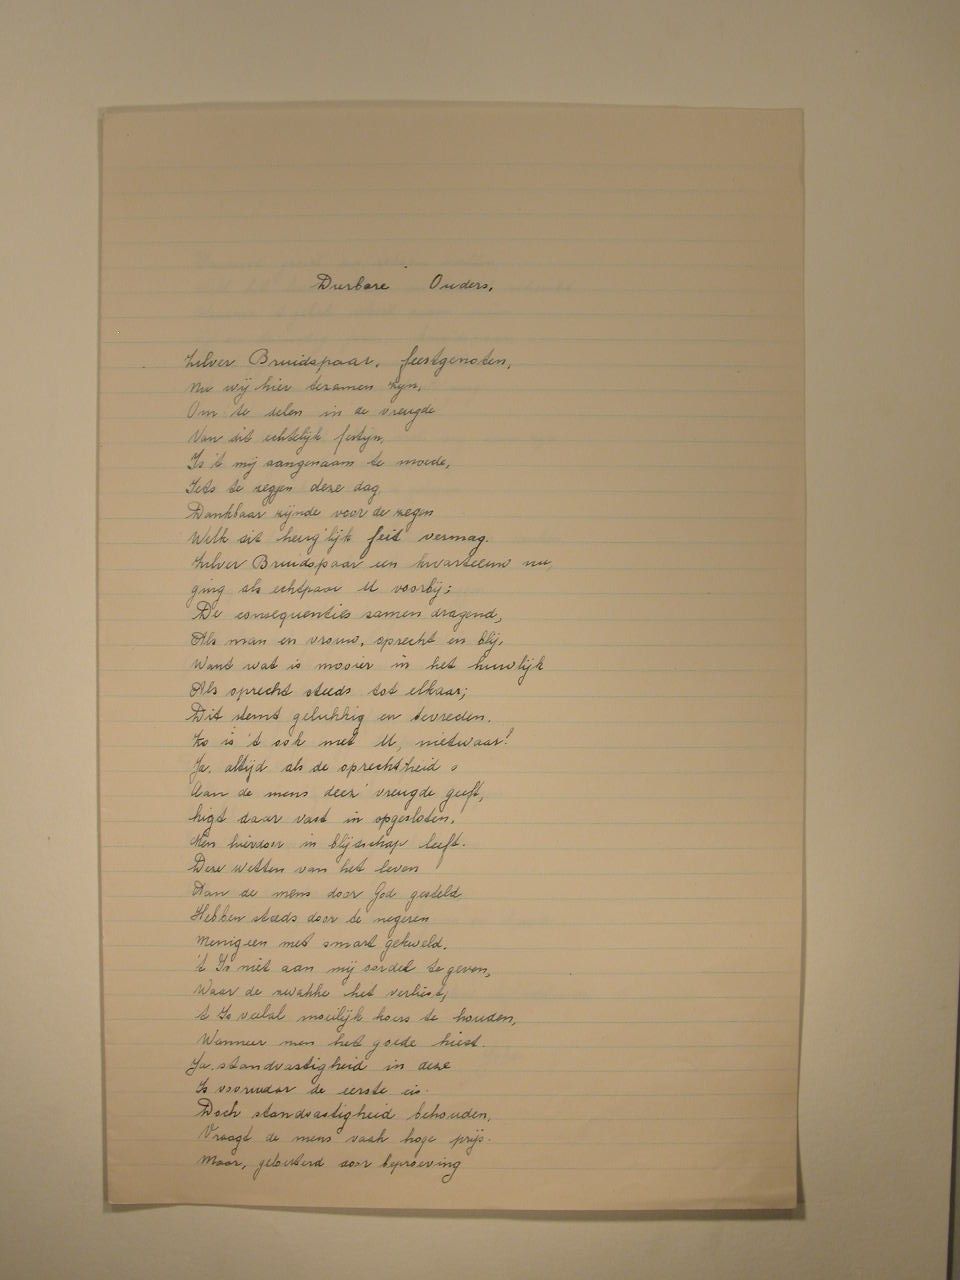 Dierbare Ouders,
Zilver Bruidspaar, feestgenoten,
Nu wij hier tezamen zyn,
Om te delen in de vreugde
Van dit echtelijk festijn,
Is 't mij aangenaam te moede,
Iets te zeggen deze dag,
Dankbaar zijnde voor de zegen
Welk dit heug'lijk feit vermag.
Zilver Bruidspaar een kwarteeuw nu,
ging als echtpaar U voorbij;
De consequenties samen dragend,
Als man en vrouw, oprecht en blij,
Want wat is mooier in het huwlijk
Als oprecht steeds tot elkaar;
Dit stemt gelukkig en tevreden.
Zo is 't ook met U, nietwaar!
Ja, altijd als de oprechtheid
Aan de mens deez' vreugde geeft,
ligt daar vast in opgesloten,
Men hierdoor in blijdschap leeft.
Deze wetten van het leven
Aan de mens door God gesteld
Hebben steeds door te negeren
menigeen met smart gekweld.
't Is niet aan mij oordeel te geven,
Waar de zwakke het verliest,
't Is veelal moeilijk koers te houden,
Wanneer men het goede kiest.
Ja, standvastigheid in deze
Is voorwaar de eerste eis.
Doch standvastigheid behouden,
Vraagt de mens vaak hoge prijs.
Maar, gelouterd door beproeving